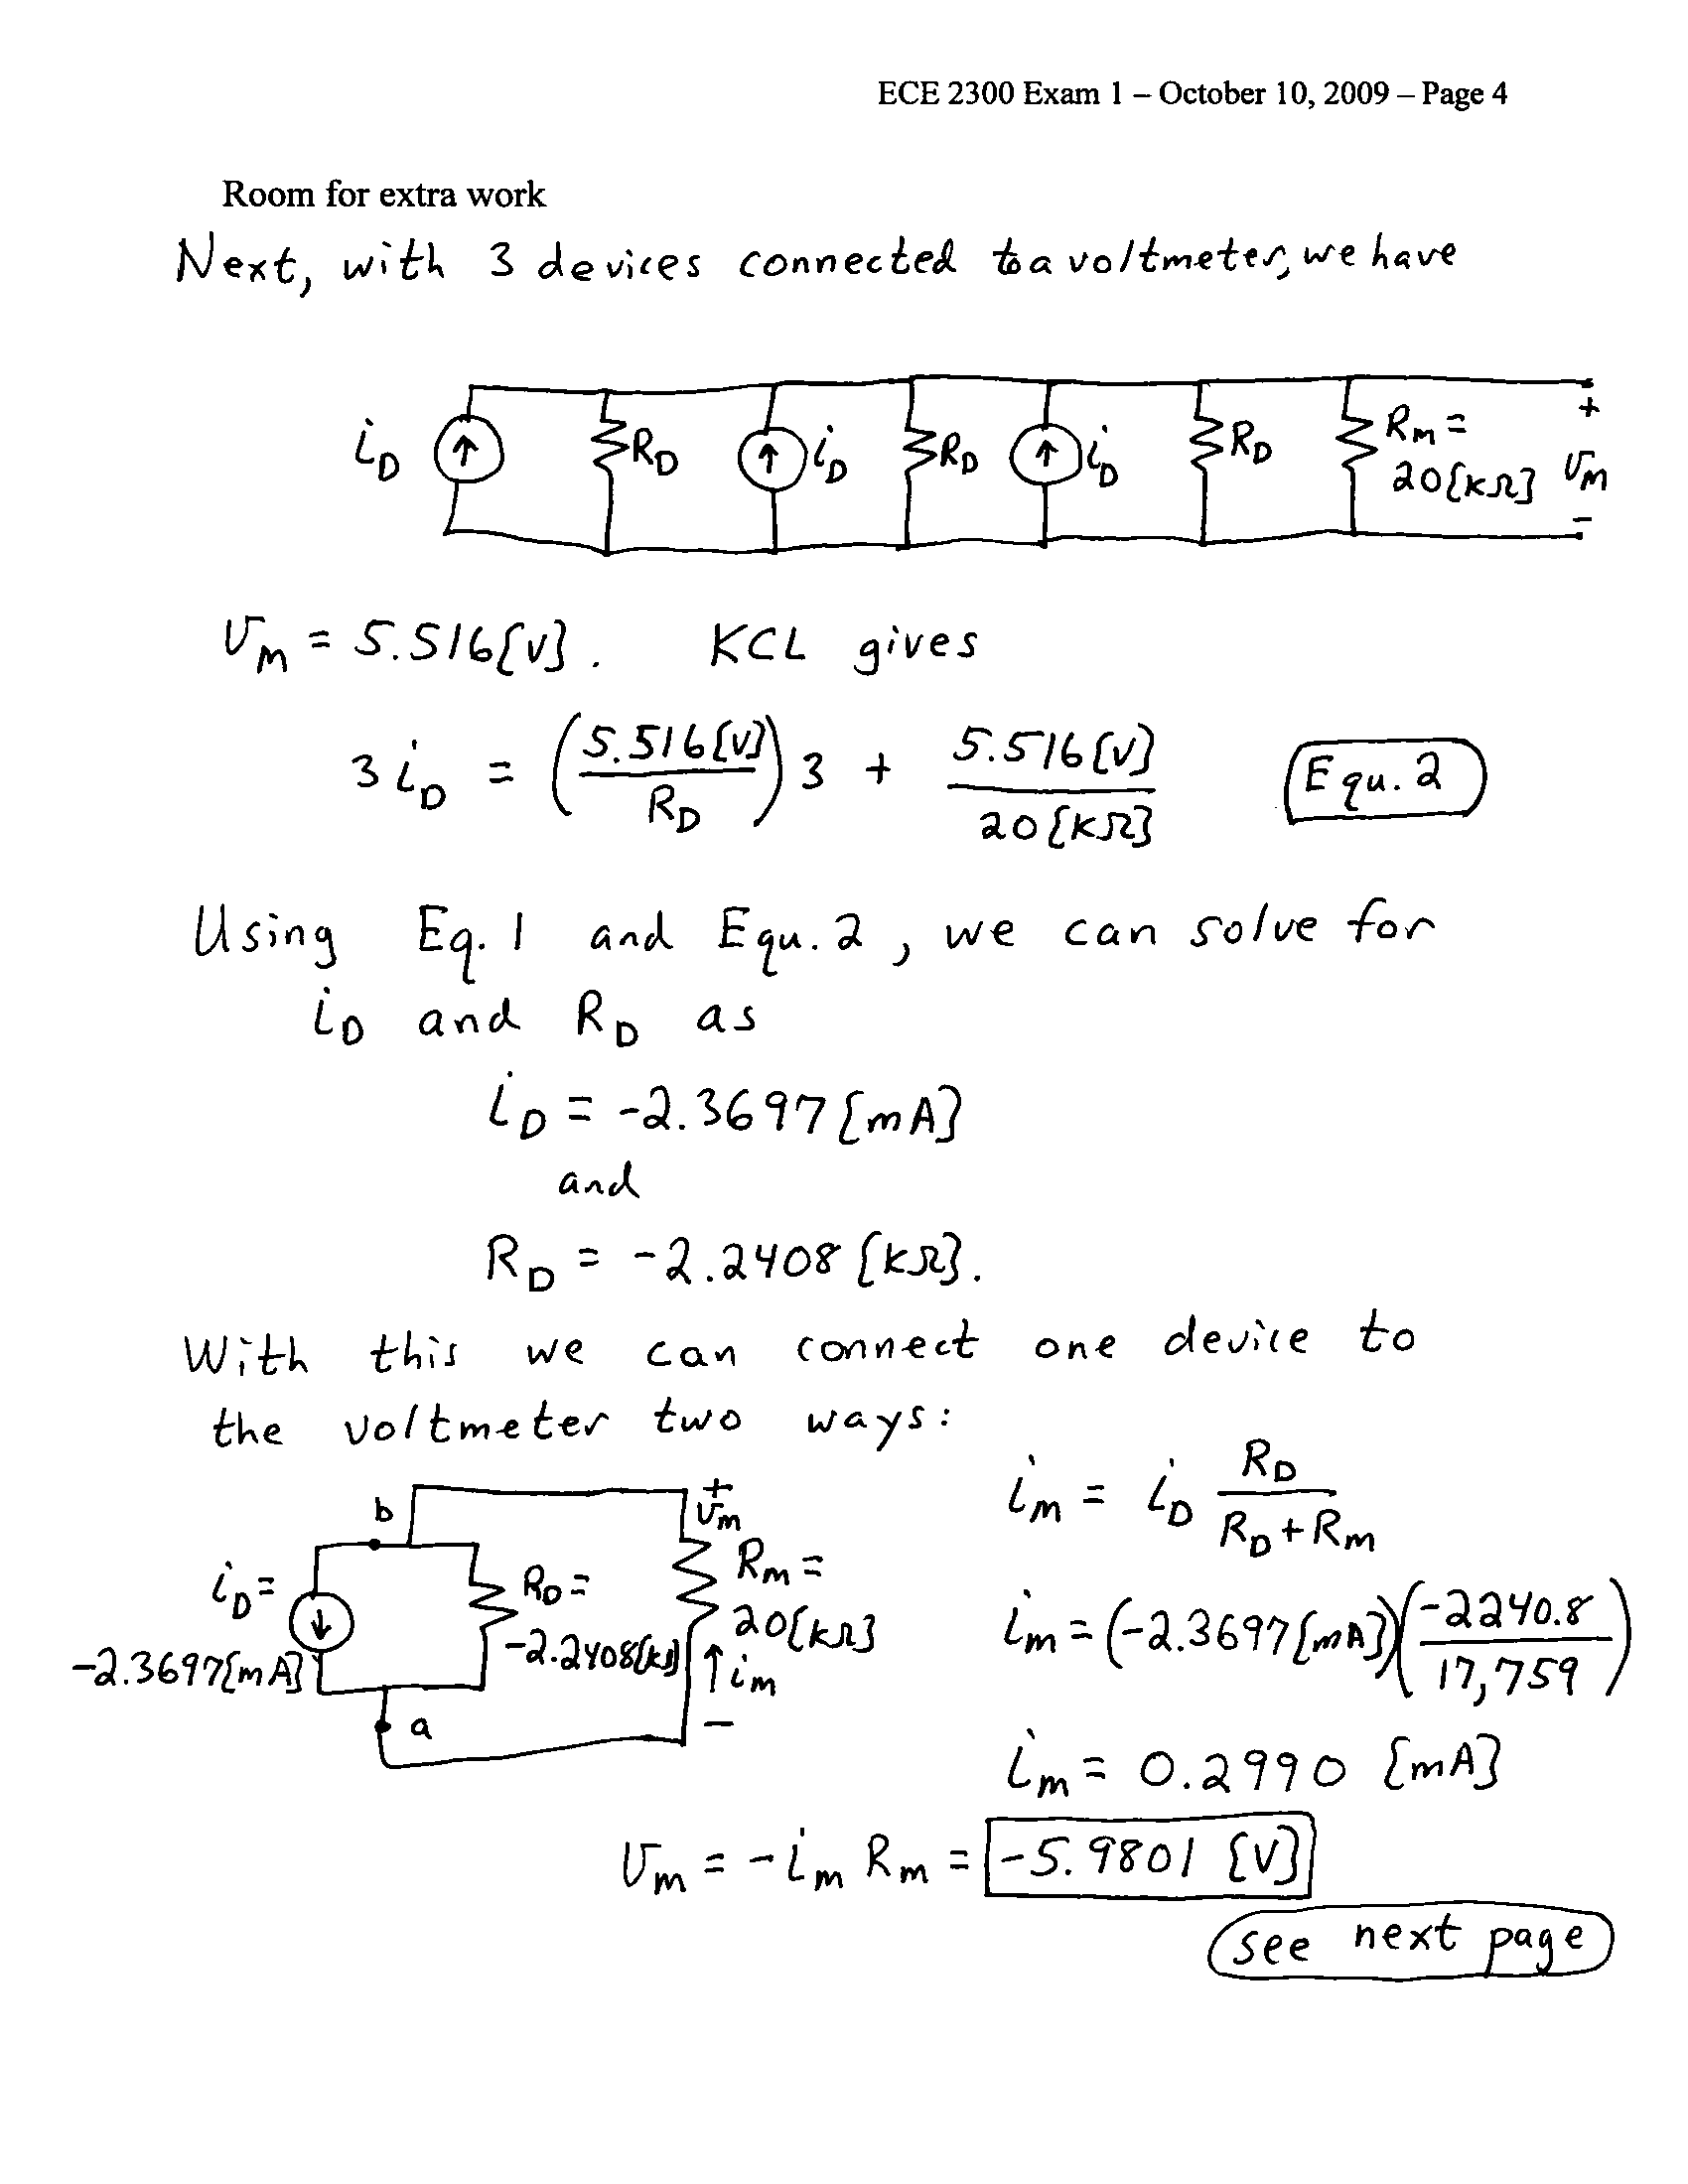 ECE 2300 Exam 1 – October 10, 2009 – Page 4
Room for extra work
Next, with 3 devices connected to a voltmeter, we have
i_D R_D i_D R_D i_D R_D R_m = 20[kΩ] + v_m -
v_m = 5.516[V]. KCL gives
3 i_D = (5.516[V] / R_D) 3 + 5.516[V] / 20[kΩ] Equ. 2
Using Eq. 1 and Equ. 2, we can solve for
i_D and R_D as
i_D = -2.3697[mA]
and
R_D = -2.2408[kΩ].
With this we can connect one device to
the voltmeter two ways:
b
i_D = -2.3697[mA]
R_D = -2.2408[kΩ]
+ v_m -
R_m = 20[kΩ]
i_m
a
i_m = i_D R_D / (R_D + R_m)
i_m = (-2.3697[mA]) (-2240.8 / 17,759)
i_m = 0.2990 [mA]
v_m = - i_m R_m = -5.9801 [V]
see next page